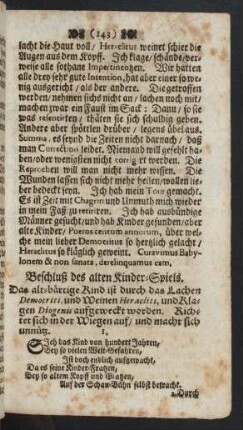 (143)
lacht die Haut voll / Heraclitus weinet schier die
Augen aus dem Kopff. Ich klage / schände / ver-
weise alle sothane Impertinentzen. Wir hatten
alle drey sehr gute Intention, hat aber einer so we-
nig ausgericht / als der andere. Die getroffen
werden / nehmen sichs nicht an / lachen noch mit /
machen zwar ein Faust im Sack: Dann / so sie
was relentirten / thäten sie sich schuldig geben.
Andere aber spöttlen drüber / legens übel aus.
Summa, es seynd die Zeiten nicht darnach / daß
man Correction leidet. Niemand will gefehlt ha-
ben / oder wenigsten nicht corrigirt werden. Die
Reprochen will man nicht mehr wissen. Die
Wunden lassen sich nicht mehr heilen / wollen lie-
ber bedeckt seyn. Ich hab mein Tour gemacht.
Es ist Zeit mit Chagrin und Unmuth mich wieder
in mein Faß zu retiriren. Ich hab ausbündige
Männer gesucht / und hab Kinder gefunden / aber
alte Kinder / Pueros centum annorum, über wel-
che mein lieber Democritus so hertzlich gelacht /
Heraclitus so kläglich geweint. Curavimus Baby-
lonem & non sanata, derelinquamus eam.
Beschluß des alten Kinder-Spiels.
Das altbärtige Kind ist durch das Lachen
Democriti, und Weinen Heracliti, und Kla-
gen Diogenis aufgeweckt worden. Rich-
tet sich in der Wiegen auf / und macht sich
unnütz.
1.
Ich das Kind von hundert Jahren,
Bey so vielen Welt-Gefahren,
Ist doch endlich aufgewacht,
Da es seine Kinder-Fratzen,
Bey so altem Kopff und Glatzen,
Auf der Schau-Bühn selbst betracht.
2. Durch